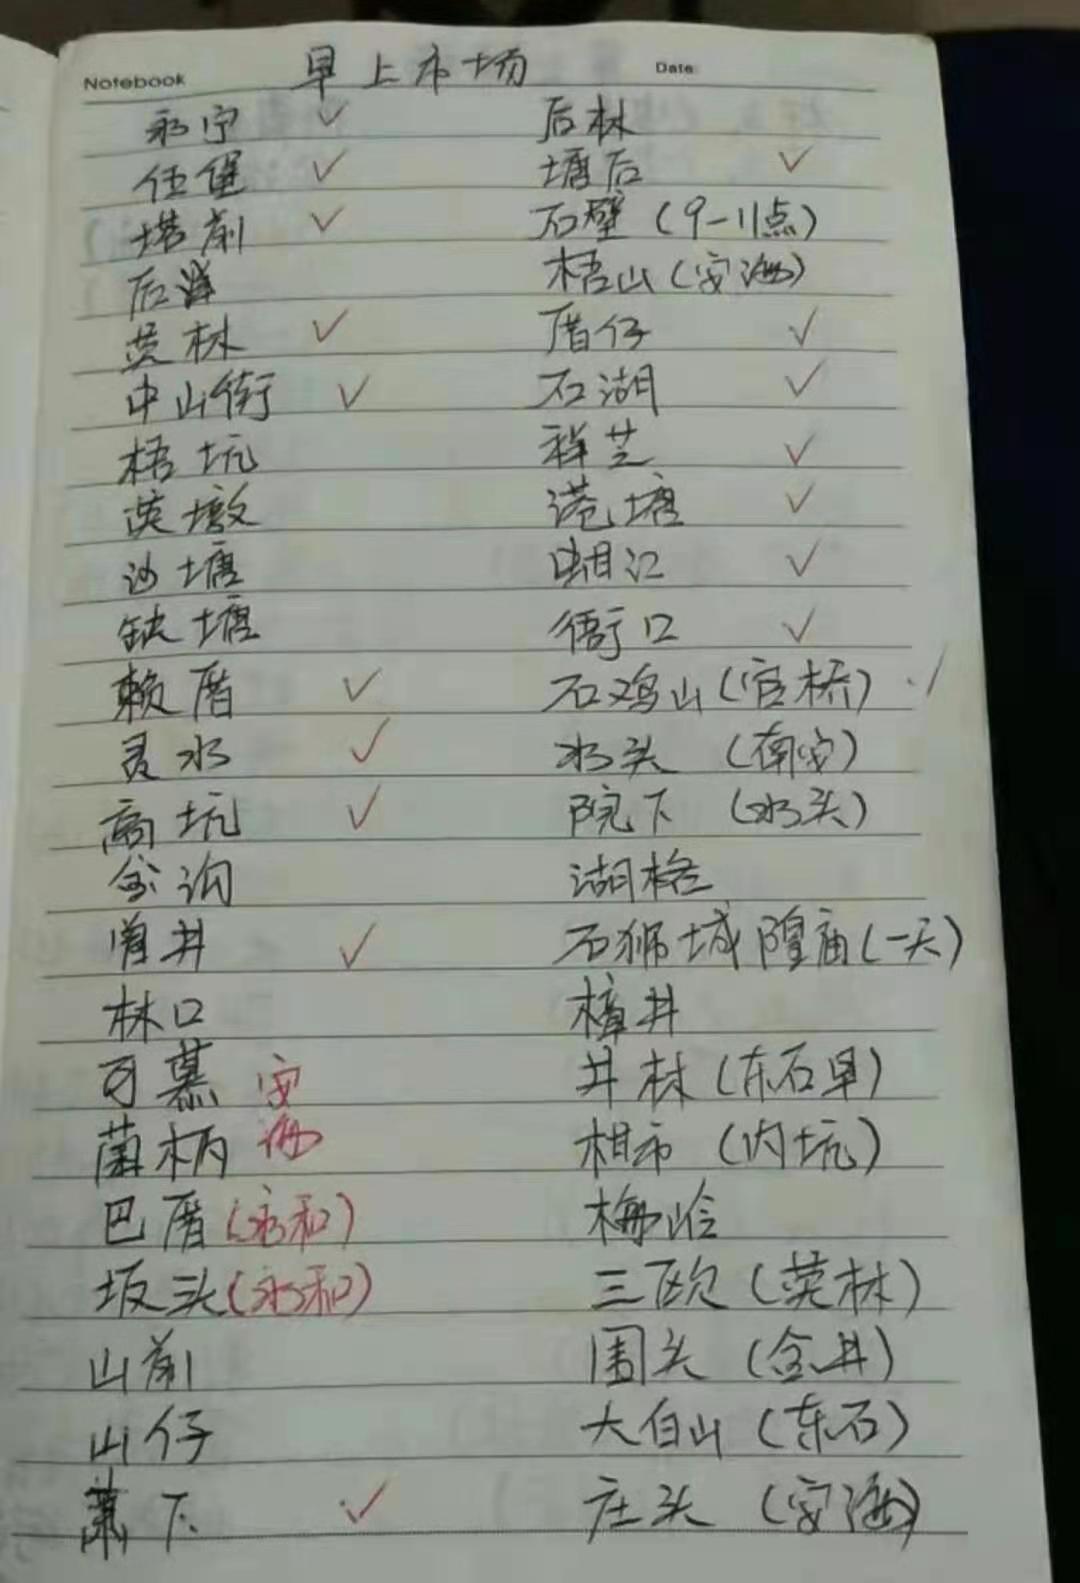 Notebook 早上市场 Date:
永宁 ✓ 后林
伍堡 ✓ 塘后 ✓
塔前 ✓ 石壁（9-11点）
后洋 梧山（安海）
英林 ✓ 厝仔 ✓
中山街 ✓ 石湖 ✓
梧坑 祥芝 ✓
英墩 港塘 ✓
沙塘 蚶江 ✓
缺塘 衙口 ✓
赖厝 ✓ 石鸡山（官桥） ✓
灵水 ✓ 水头（南安）
高坑 ✓ 院下（水头）
湖格
曾井 ✓ 石狮城隍庙（一天）
林口 樟井
可慕 安海 井林（东石早）
菌柄 相市（内坑）
巴厝（永和） 梅岭
坂头（永和） 三欧（英林）
山前 围头（金井）
山仔 大白山（东石）
萧下 ✓ 庄头（安海）